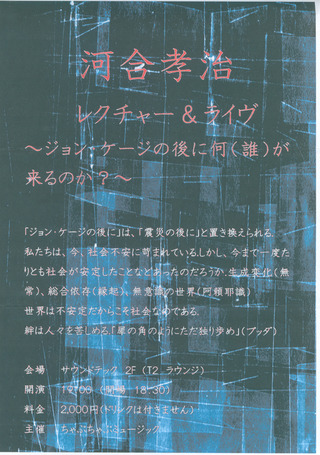 河合孝治
レクチャー＆ライヴ
～ジョン・ケージの後に何（誰）が
来るのか？～
「ジョン・ケージの後に」は、「震災の後に」と置き換えられる。
私たちは、今、社会不安に苛まれている。しかし、今まで一度た
りとも社会が安定したことなどあったのだろうか。生成変化（無
常）、総合依存（縁起）、無意識の世界（阿頼耶識）
世界は不安定だからこそ社会なのである。
絆は人々を苦しめる。「犀の角のようにただ独り歩め」（ブッダ）
会場 サウンドテック 2F（T2 ラウンジ）
開演 19:00 （開場 18:30）
料金 2,000円（ドリンクは付きません）
主催 ちゃぷちゃぷミュージック